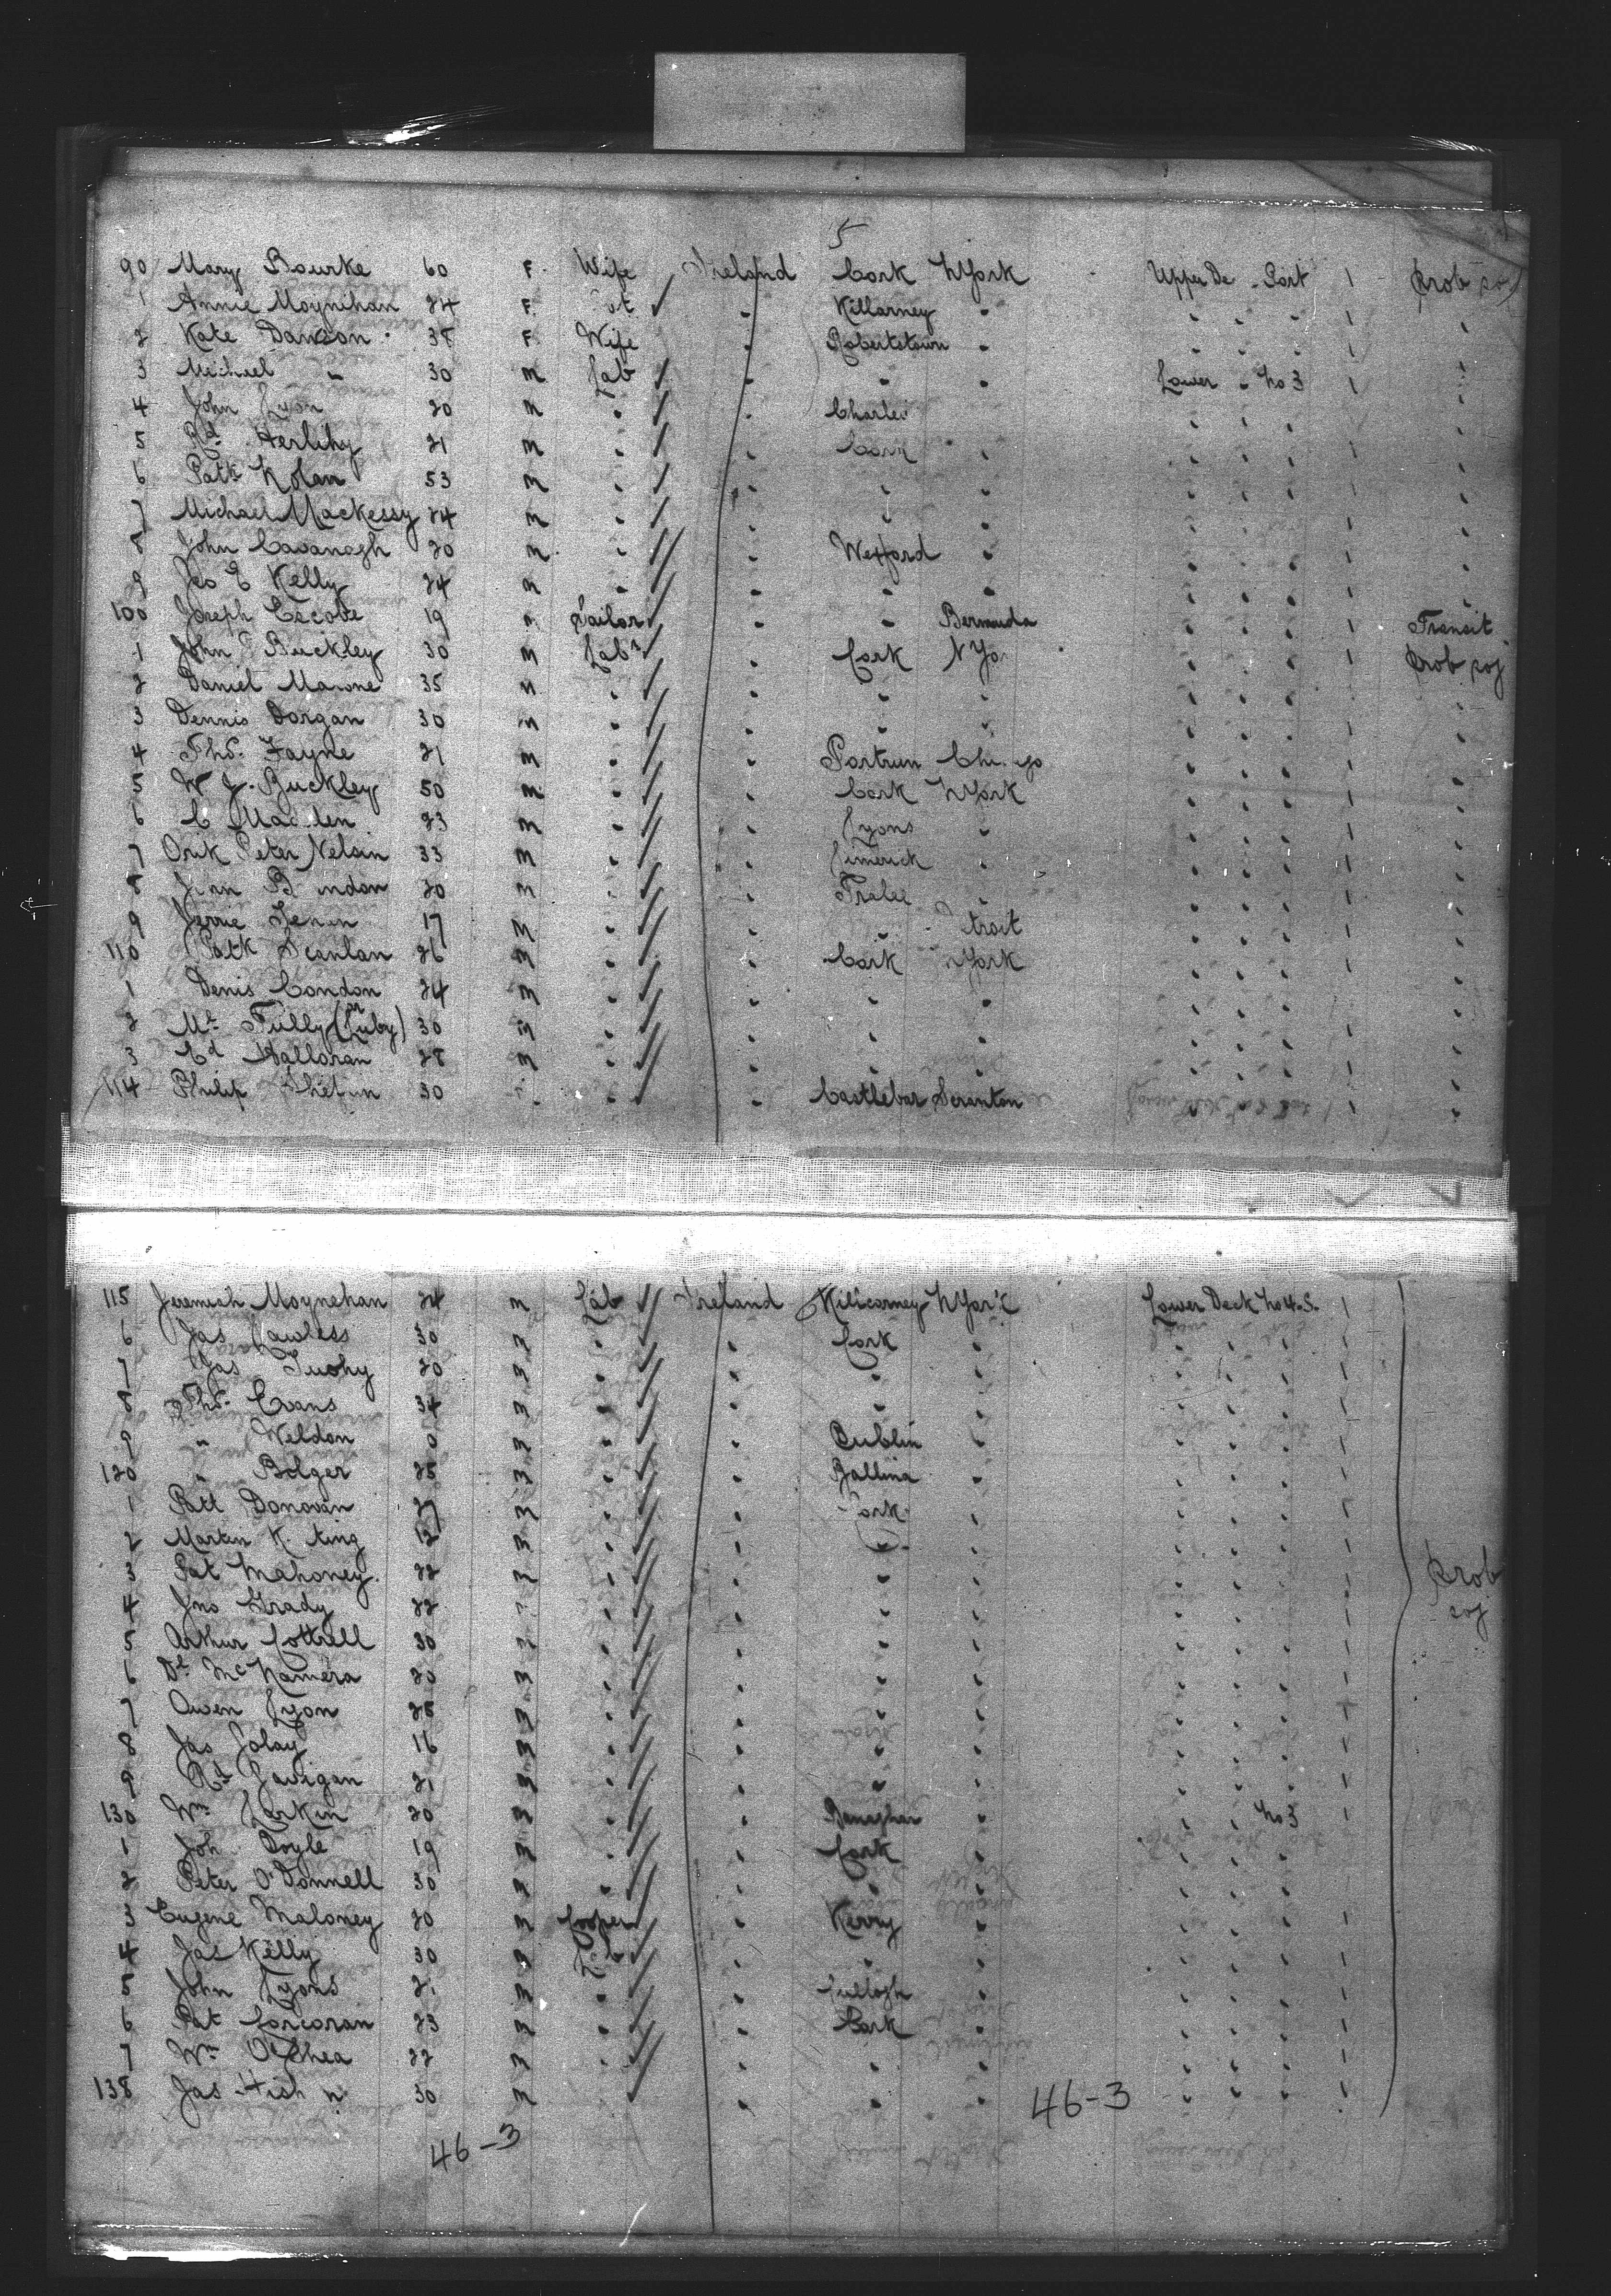 5
90 Mary Bourke 60 F. Wife Ireland Cork NYork Upper De Port 1 Prob soj
1 Annie Moynihan 24 F. " Killarney " " " " 1 "
2 Kate Dawson 38 F Wife " Robertstown " " " " 1 "
3 Michael " 30 m Lab " " " Lower " No 3 1 "
4 John Lyon 20 m " " Charlev " " " " 1 "
5 Rd Herlihy 21 m " " Cork " " " " 1 "
6 Patk Nolan 53 m " " " " " " " 1 "
7 Michael Mackessy 24 m " " " " " " " 1 "
8 John Cavanagh 20 m " " Wexford " " " " 1 "
9 Geo E Kelly 24 m " " " " " " " 1 "
100 Joseph Escobe 19 m Sailor " " Bermuda " " " 1 Transit
1 John Buckley 30 m Labr " Cork NYo " " " 1 Prob soj
2 Daniel Marone 35 m " " " " " " " 1 "
3 Dennis Dorgan 30 m " " " " " " " 1 "
4 Thos. Fayne 21 m " " Portrun " " " 1 "
5 W J. Buckley 50 m " " Cork NYork " " " 1 "
6 C 23 m " " Lyons " " " " 1 "
7 Orik Peter Nelson 33 m " " Limerick " " " " 1 "
8 20 m " " Tralee " " " " 1 "
9 Jerrie 17 m " " " troit " " " 1 "
110 Patk Scanlan 26 m " " Cork NYork " " " 1 "
1 Denis Condon 24 m " " " " " " " 1 "
2 Mt Tully (or Luby) 30 m " " " " " " " 1 "
3 Ed Halloran 28 m " " " " " " " 1 "
114 Philip 30 " " Castlebar Scranton " 1 "
115 Jeremiah Moynehan 24 m Lab Ireland Killarney NYork Lower Deck No 4.5. 1
6 Jas Lawless 30 m " " Cork " " " " 1
7 Jas Tuohy 20 m " " " " " " " 1
8 Thos. Evans 34 m " " " " " " " 1
9 " Weldon 0 m " " Dublin " " " " 1
120 " Bolger 25 m " " Ballina " " " " 1
1 Patt Donovan 27 m " " Cork " " " " 1
2 Martin K ting 12 m " " " " " " " 1
3 Pat Mahoney. 22 m " " " " " " " 1 Prob
4 Jno Grady 22 " " " " " " " 1 soj
5 Arthur Cottrell 30 m " " " " " " " 1
6 Dl McNamera 20 m " " " " " " " 1
7 Owen Lyon 28 m " " " " " " " 1
8 Jas Foley 16 m " " " " " " " 1
9 Rd Gavigan 21 m " " " " " " " 1
130 Wm Larkin 20 m " " Banagher " " " No 3 1
1 Joh Doyle 19 m " " Cork " " " "
2 Peter O'Donnell 30 m " " " " " " "
3 Eugene Maloney 20 m Cooper " Kerry " " " " 1
4 Jas Kelly 30 m Lab " " " " " " 1
5 John Lyons m " " Tullogh " " " " 1
6 Pat Corcoran 23 m " " Cork " " " " 1
7 Wm O'Shea 22 m " " " " " " " 1
138 Jas 30 m " " " " " " 1
46-3
46-3